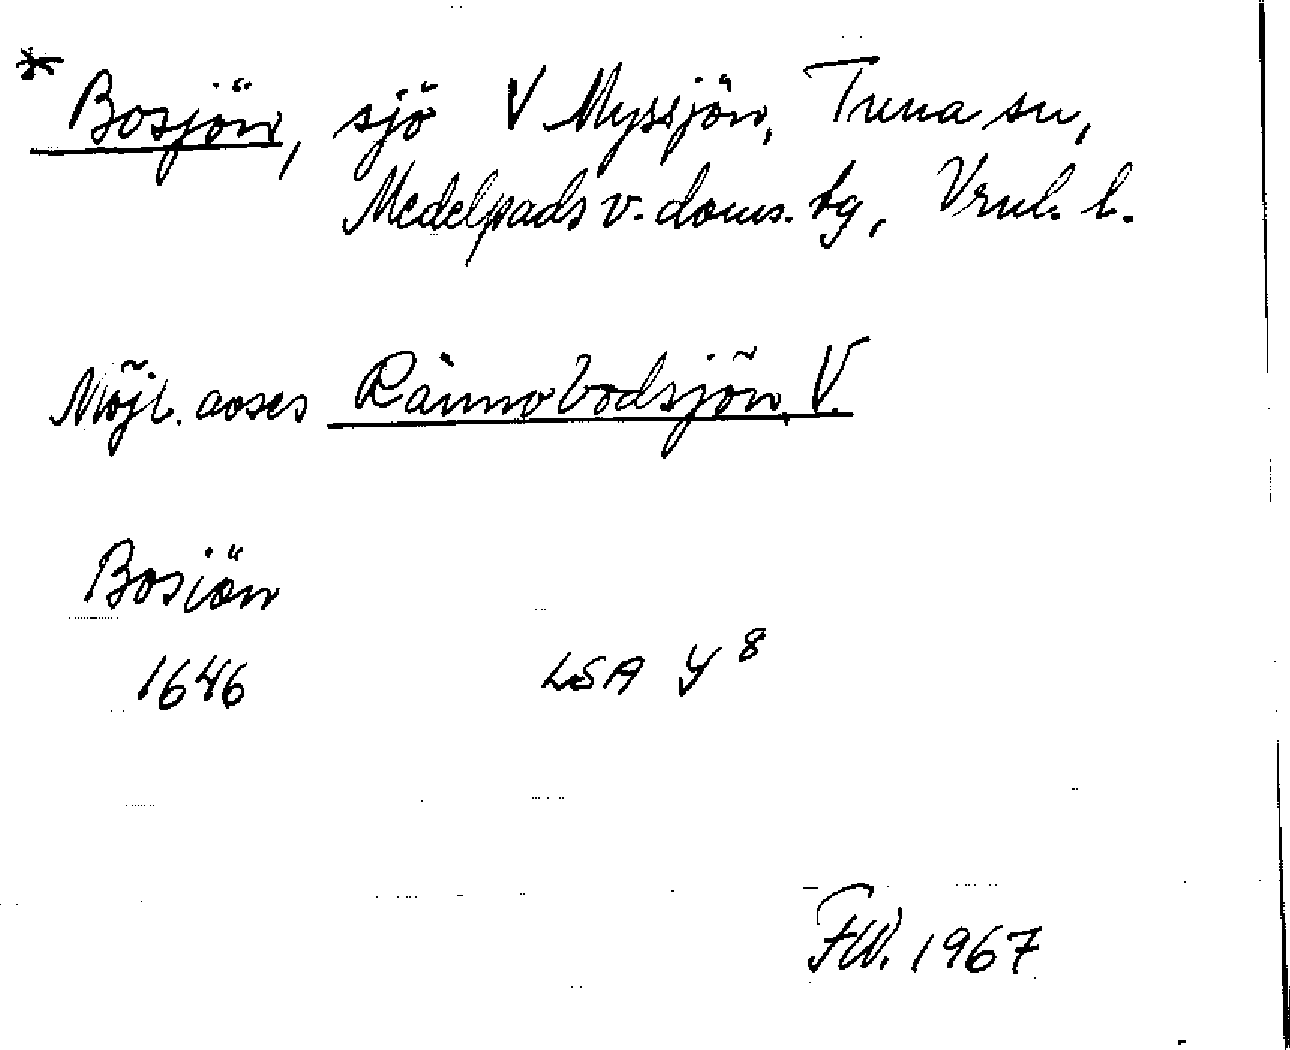 * Bosjön, sjö V Myssjön, Tuna sn,
Medelpads v. doms. tg, Vrnl. l.
Möjl. avses Rännö bodsjön, V.
Bosiön
1646 LSA Y 8
FW. 1967